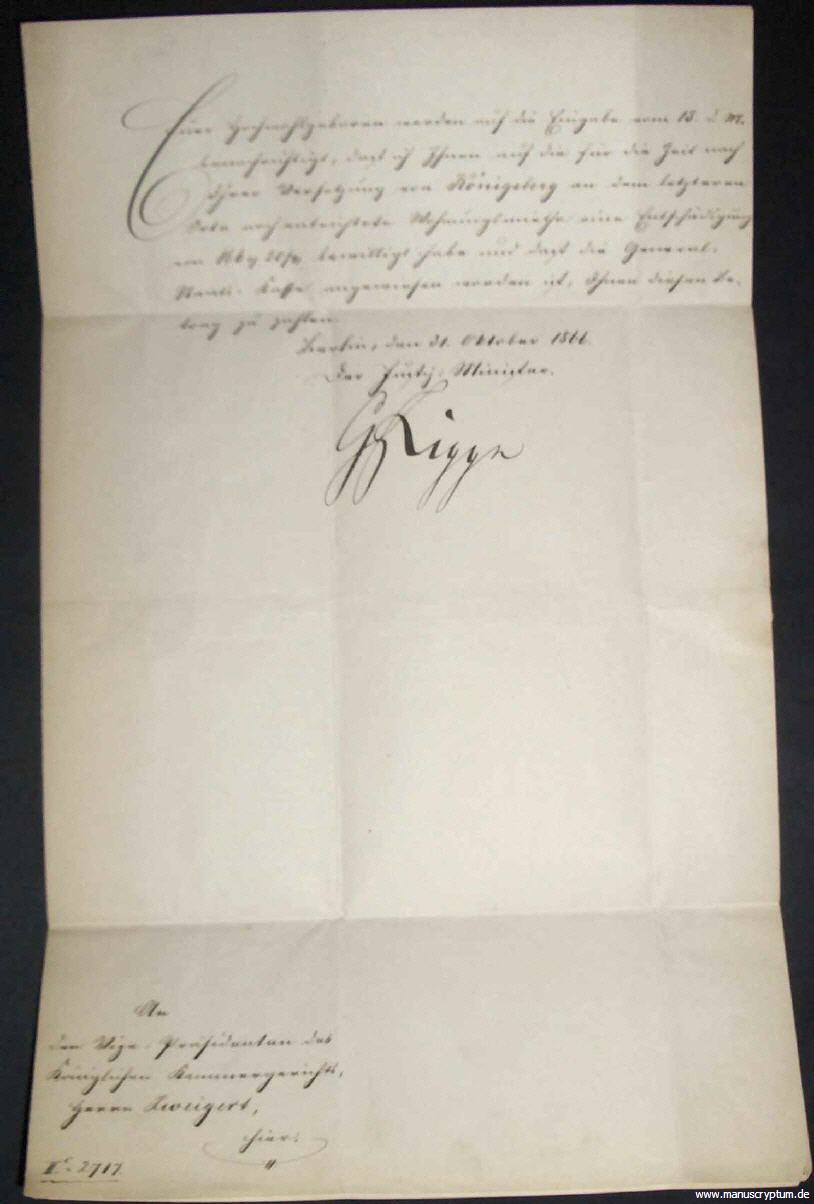 Euer Hochwohlgeboren werden auf die Eingabe vom 18. d. M.
benachrichtigt, daß ich Ihnen auf die für die Zeit nach
Ihrer Versetzung von Königsberg an dem letzteren
Orte noch entrichtete Wohnungsmiethe eine Entschädigung
von bewilligt habe und daß die General-
Staats-Kasse angewiesen worden ist, Ihnen diesen Be-
trag zu zahlen.
Berlin, den 31. Oktober 1866.
Der Justiz-Minister.
GLippe
An
den Vize-Präsidenten des
Königlichen Kammergerichts,
Herrn Zweigert,
hier.
2717.
www.manuscryptum.de